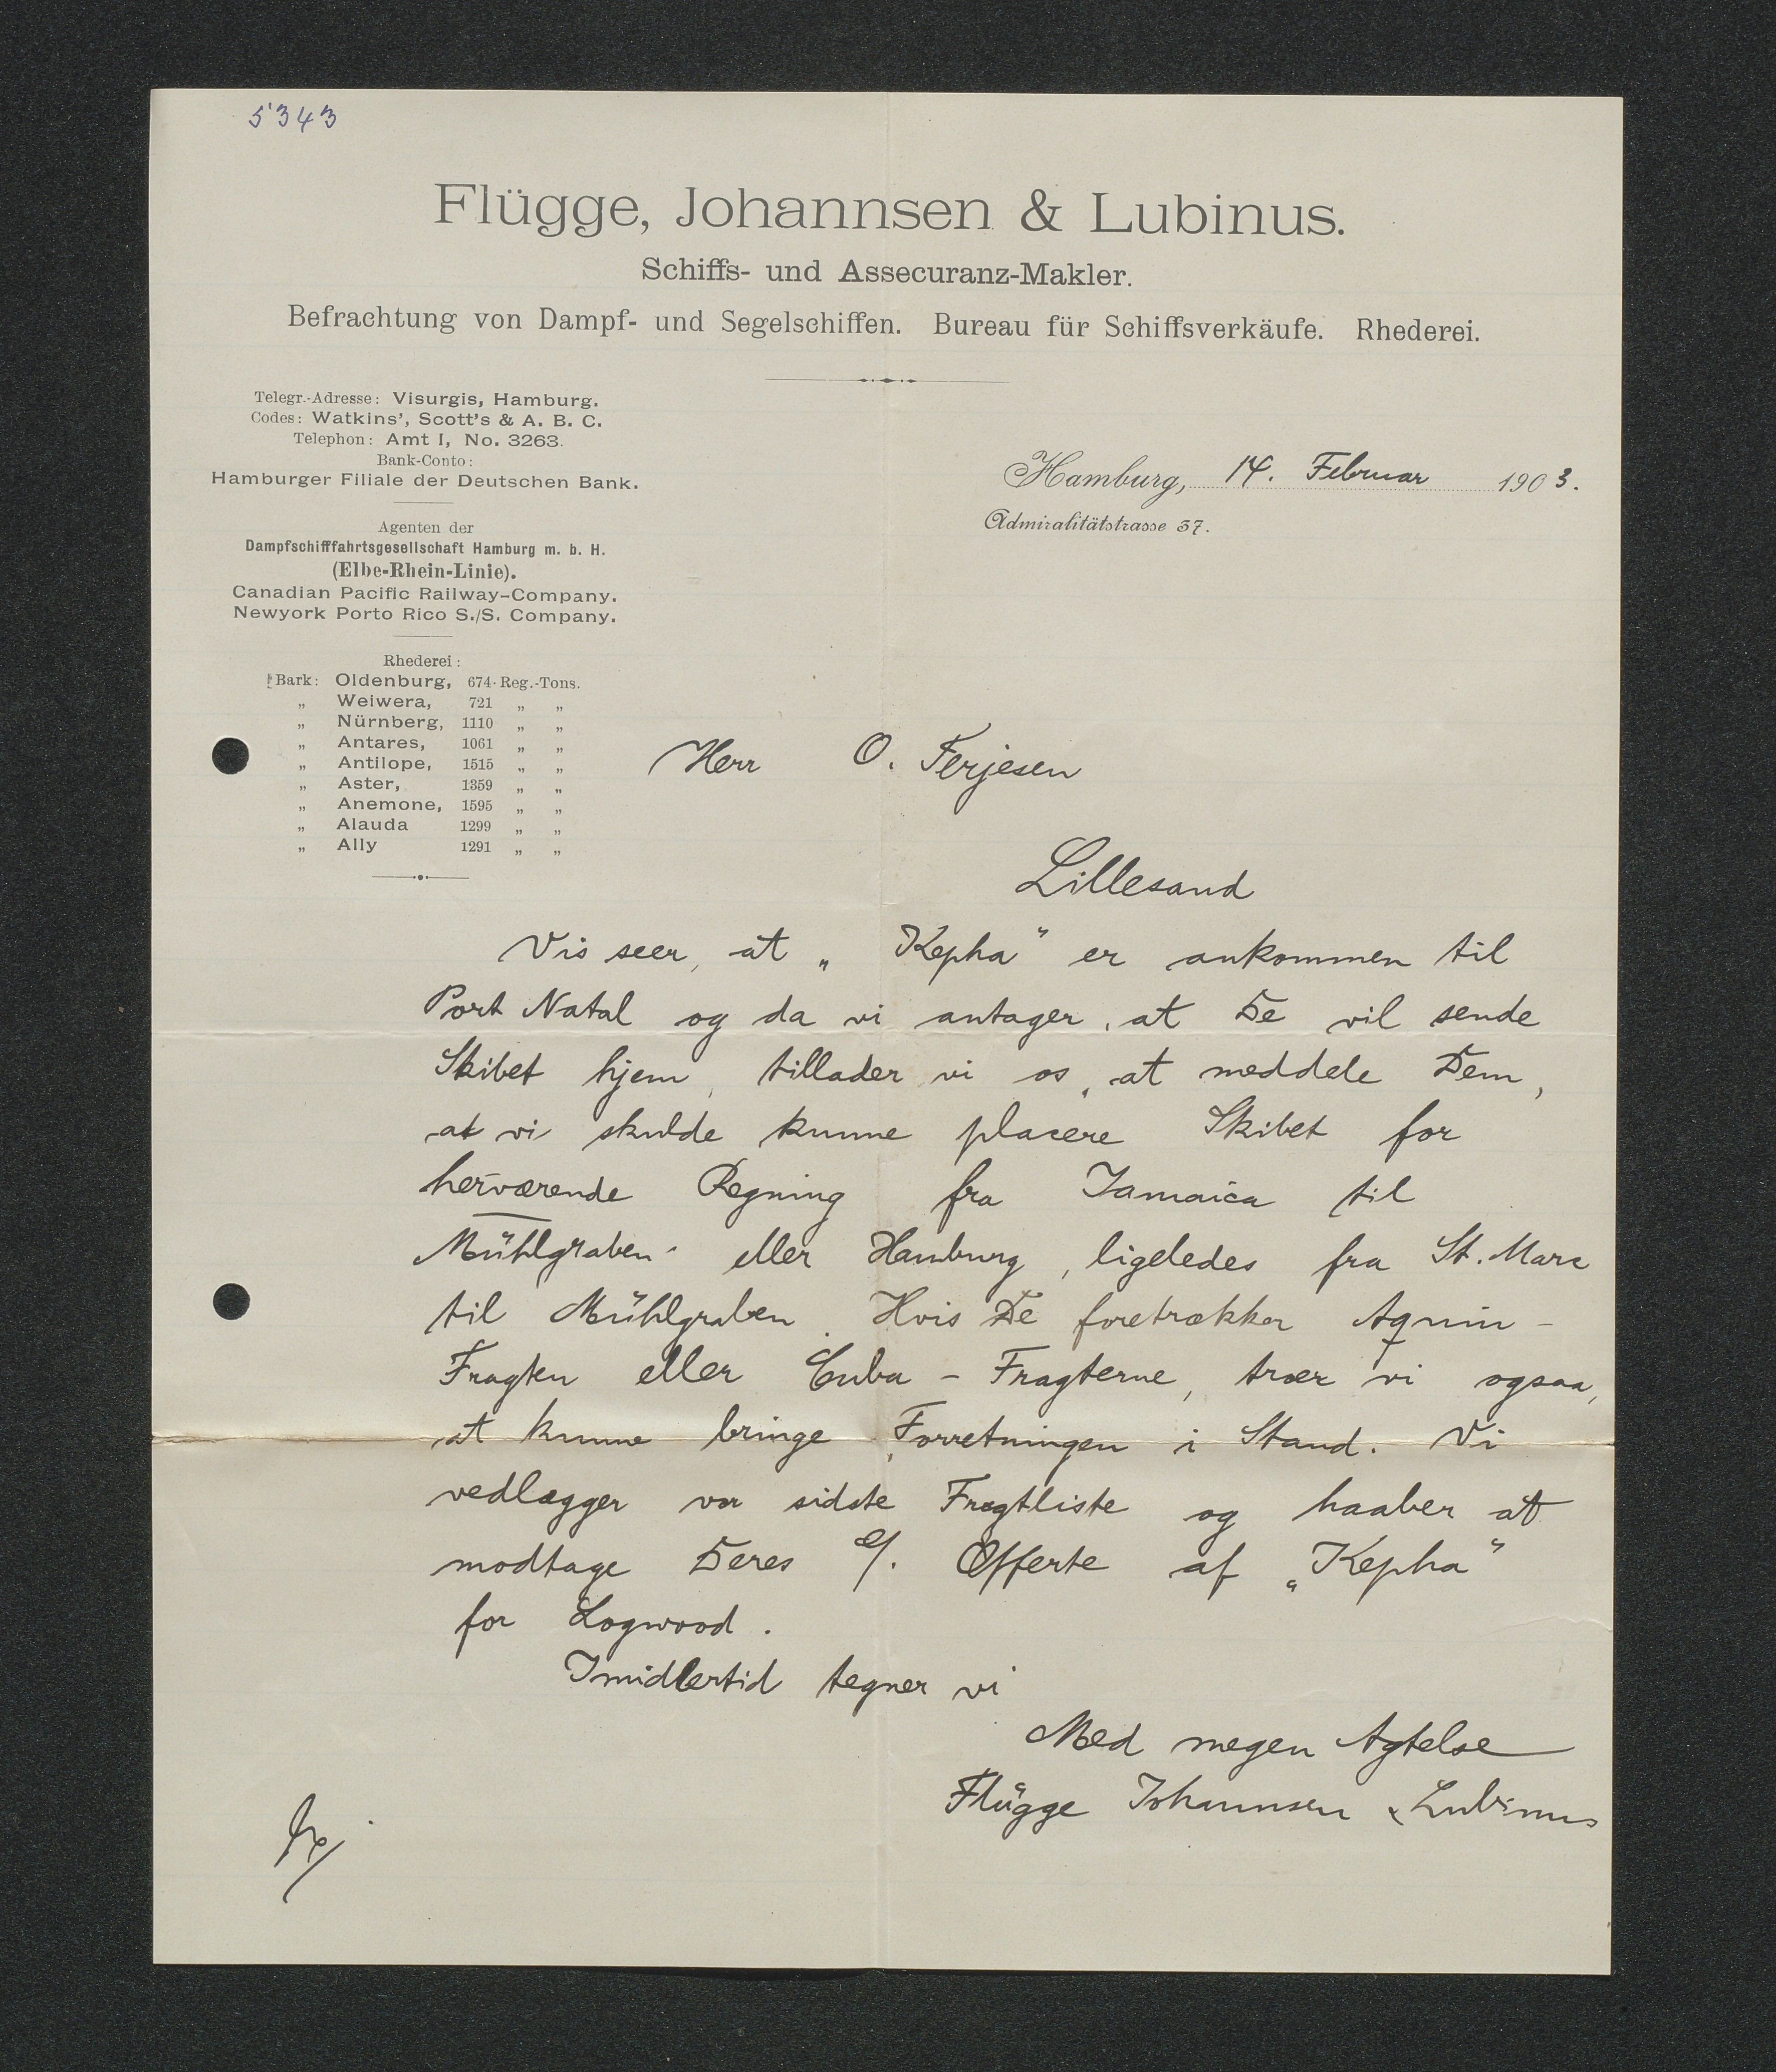 5343
Flügge, Johannsen & Lubinus.
Schiffs- und Assecuranz-Makler.
Befrachtung von Dampf- und Segelschiffen. Bureau für Schiffsverkäufe. Rhederei.
Telegr.-Adresse: Visurgis, Hamburg.
Codes: Watkins', Scott's & A. B. C.
Telephon: Amt I, No. 3263.
Bank-Conto:
Hamburger Filiale der Deutschen Bank.
Agenten der
Dampfschifffahrtsgesellschaft Hamburg m. b. H.
(Elbe-Rhein-Linie).
Canadian Pacific Railway-Company.
Newyork Porto Rico S./S. Company.
Rhederei:
Bark: Oldenburg, 674 Reg.-Tons.
„ Weiwera, 721 „ „
„ Nürnberg, 1110 „ „
„ Antares, 1061 „ „
„ Antilope, 1515 „ „
„ Aster, 1359 „ „
„ Anemone, 1595 „ „
„ Alauda 1299 „ „
„ Ally 1291 „ „
Hamburg, 14. Februar 1903.
Admiralitätstrasse 37.
Herr O. Terjesen
Lillesand
Vis seer, at „Kepha" er ankommen til
Port Natal og da vi antager, at De vil sende
Skibet hjem, tillader vi os, at meddele Dem,
at vi skulde kunne placere Skibet for
herværende Regning fra Jamaica til
Mühlgraben eller Hamburg, ligeledes fra St. Marc
til Mühlgraben. Hvis De foretrækker Aquin-
Fragten eller Cuba-Fragterne, troer vi ogsaa,
at kunne bringe Forretningen i Stand. Vi
vedlægger vor sidste Fragtliste og haaber at
modtage Deres e/. Offerte af „Kepha"
for Logwood.
Imidlertid tegner vi
Med megen Agtelse
Flügge Johannsen & Lubinus